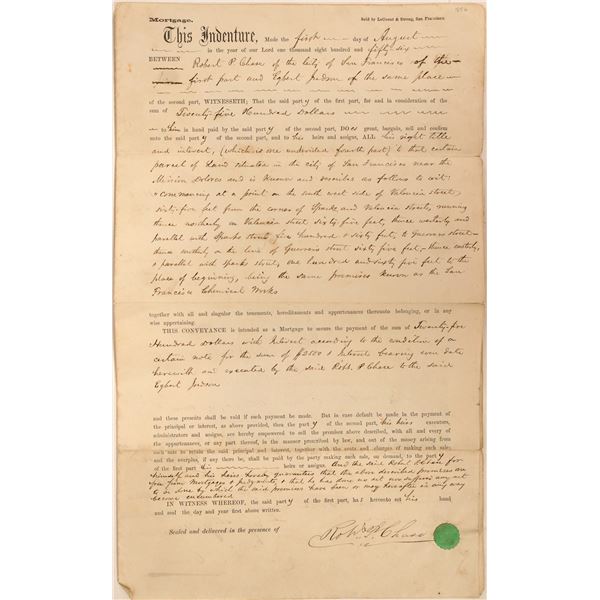 1856
Mortgage. Sold by LeCount & Strong, San Francisco
This Indenture, Made the first day of August
in the year of our Lord one thousand eight hundred and fifty six
BETWEEN Robert P. Chase of the City of San Francisco of the
first part and Egbert Judson of the same place
of the second part, WITNESSETH; That the said party of the first part, for and in consideration of the
sum of Twenty-five Hundred Dollars
to him in hand paid by the said party of the second part, DOES grant, bargain, sell and confirm
unto the said party of the second part, and to his heirs and assigns, ALL his right title
and interest, (which is one undivided fourth part) to that certain
parcel of Land situated in the city of San Francisco near the
Mission Dolores and is known and describes as follows to wit:
Commencing at a point on the south west side of Valencia street,
sixty-five feet from the corner of Sparks and Valencia streets, running
thence northerly on Valencia street sixty five feet, thence westerly and
parallel with Sparks street five hundred & sixty feet, to Guerrero street
thence southerly on the line of Guerrero street sixty five feet, thence easterly,
& parallel with Sparks street, one hundred and sixty five feet to the
place of beginning, being the same premises known as the San
Francisco Chemical Works
together with all and singular the tenements, hereditaments and appurtenances thereunto belonging, or in any
wise appertaining.
THIS CONVEYANCE is intended as a Mortgage to secure the payment of the sum of Twenty-five
Hundred Dollars with Interest according to the condition of a
certain note for the sum of $2500 & Interest bearing even date
herewith and executed by the said Robt. P. Chase to the said
Egbert Judson
and these presents shall be void if such payment be made. But in case default be made in the payment of
the principal or interest, as above provided, then the party of the second part, his heirs executors,
administrators and assigns, are hereby empowered to sell the premises above described, with all and every of
the appurtenances, or any part thereof, in the manner prescribed by law, and out of the money arising from
such sale to retain the said principal and interest, together with the costs and charges of making such sale;
and the overplus, if any there be, shall be paid by the party making such sale, on demand, to the party
of the first part his heirs or assigns. And the said Robt. P. Chase for
himself and his heirs hereby guarantees that the above described premises are
free from Mortgages & Judgments, & that he has done no act nor suffered any act
to be done by which the said premises have been or may hereafter in any way
become encumbered
IN WITNESS WHEREOF, the said party of the first part, has hereunto set his hand
and seal the day and year first above written.
Sealed and delivered in the presence of
Robt. P. Chase